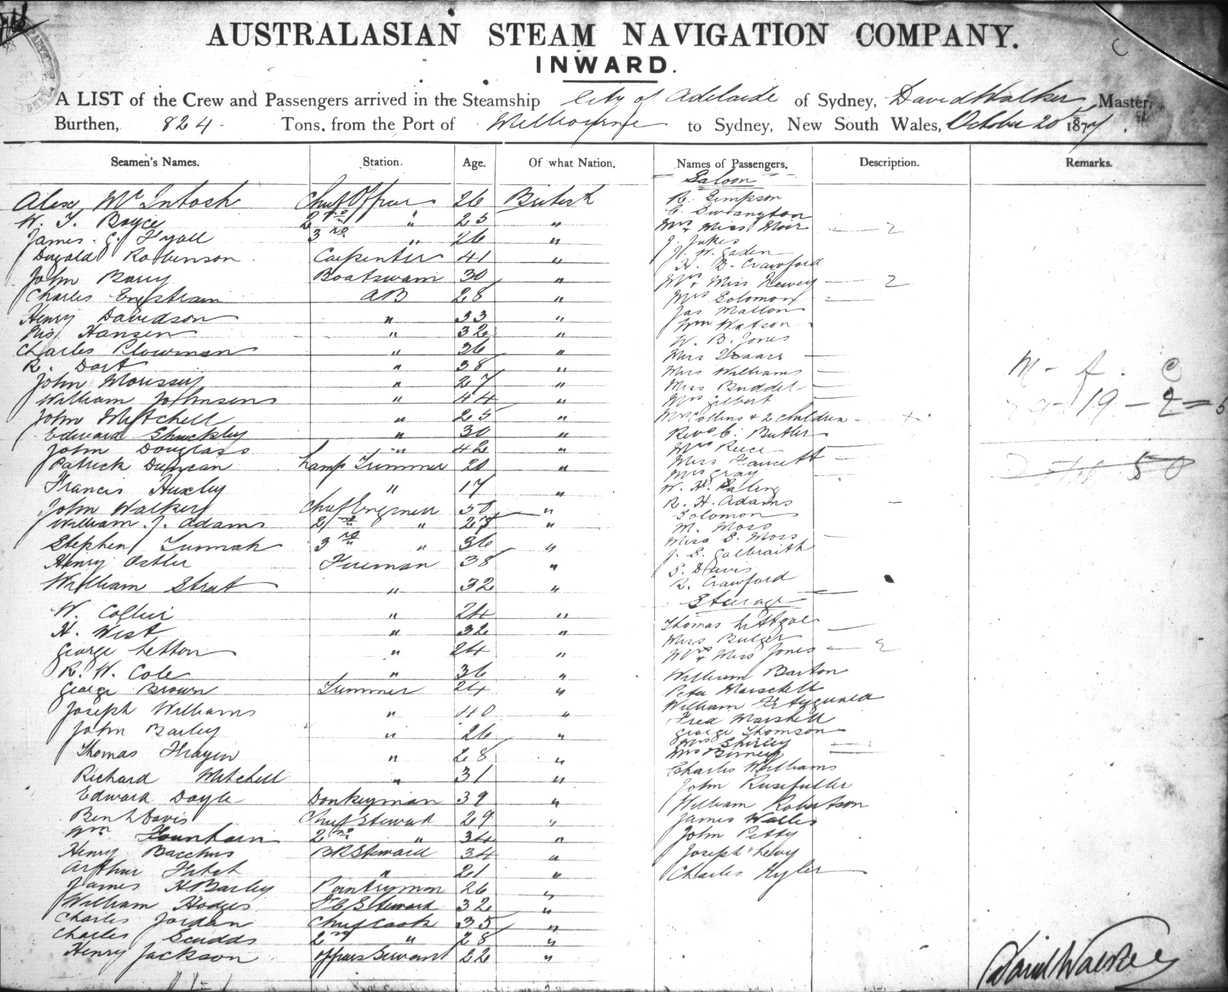 AUSTRALASIAN STEAM NAVIGATION COMPANY.
INWARD.
A LIST of the Crew and Passengers arrived in the Steamship City of Adelaide of Sydney, David Walker Master,
Burthen, 824 Tons, from the Port of Melbourne to Sydney, New South Wales, October 20 1877.
Seamen's Names. Station. Age. Of what Nation. Names of Passengers. Description. Remarks.
Alex McIntosh Chief Officer 26 British
W. T. Boyce 2nd " 25 "
James G. Fyall 3rd " 26 "
Dugald Robinson Carpenter 41 "
John Barry Boatswain 30 "
Charles Engstrom AB 28 "
Henry Davidson " 33 "
Hansen " 32 "
Charles Plowman " 26 "
R. Dort " 38 "
John Morissey " 27 "
William Johnson " 44 "
John Mitchell " 25 "
Edward Shuckley " 30 "
John Douglass " 42 "
Patrick Duncan Lamp Trimmer 20 "
Francis Huxley " 17 "
John Walker Chief Engineer 50 "
William J. Adams 2nd " 25 "
Stephen Tunnah 3rd " 36 "
Henry Ostler Fireman 38 "
William Strut " 32 "
W. Collier " 24 "
H. West " 32 "
George Letton " 24 "
R. W. Cole " 36 "
George Brown Trimmer 24 "
Joseph Williams " 40 "
John Barley " 26 "
Thomas " 28 "
Richard Mitchell " 31 "
Edward Doyle Donkeyman 39 "
Benh Davis Chief Steward 29 "
Wm 2nd " 34 "
Henry Bacchus BR Steward 34 "
Arthur " 21 "
James H Barley Pantryman 26 "
William Hodges Steward 32 "
Charles Jordan Chief Cook 35 "
Charles Scudds 2nd " 28 "
Henry Jackson Officers Servant 22 "
Saloon
R. Simpson
C. Swinington
Mrs & Miss Moir — 2
J Jukes
J. W. Gaden
H. B. Crawford
Mrs & Miss Hewey — 2
Mrs Solomon —
Jas Walton
Wm Watson
W. B. Jones
Miss Isaacs —
Miss Williams —
Miss Buddel —
Mrs Gilbert —
Mrs Collins & 2 children -
Revd C. Butler
Mrs Rice —
Miss Fawcett —
Mrs Gray —
W. H. Paling
R. H. Adams
Solomon
M. Moss
Miss S. Moss —
J. S. Galbraith
S. Davis
R. Crawford
Steerage
Thomas
Miss Bulger —
Mrs & Miss Jones — 2
William Barton
Peter Marschell
William Fitzgerald
Fred Marshall
George Thomson
Mrs Shirley —
Mrs Birney —
Charles Williams
John
William Robertson
James Wailes
John Petty
Joseph Levy
Charles Kyler
M - f. C
19 - 2 = 5
50
David Walker